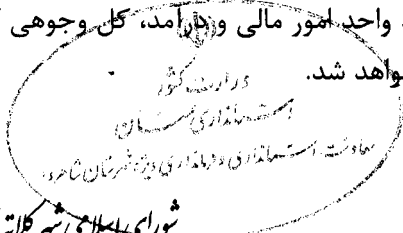 واحد امور مالی و درآمد، کل وجوهی
واهد شد.
وزارت کشور
استانداری سمنان
معاونت استانداری و فرمانداری ویژه شهرستان شاهرود
شورای اسلامی شهر کلاته